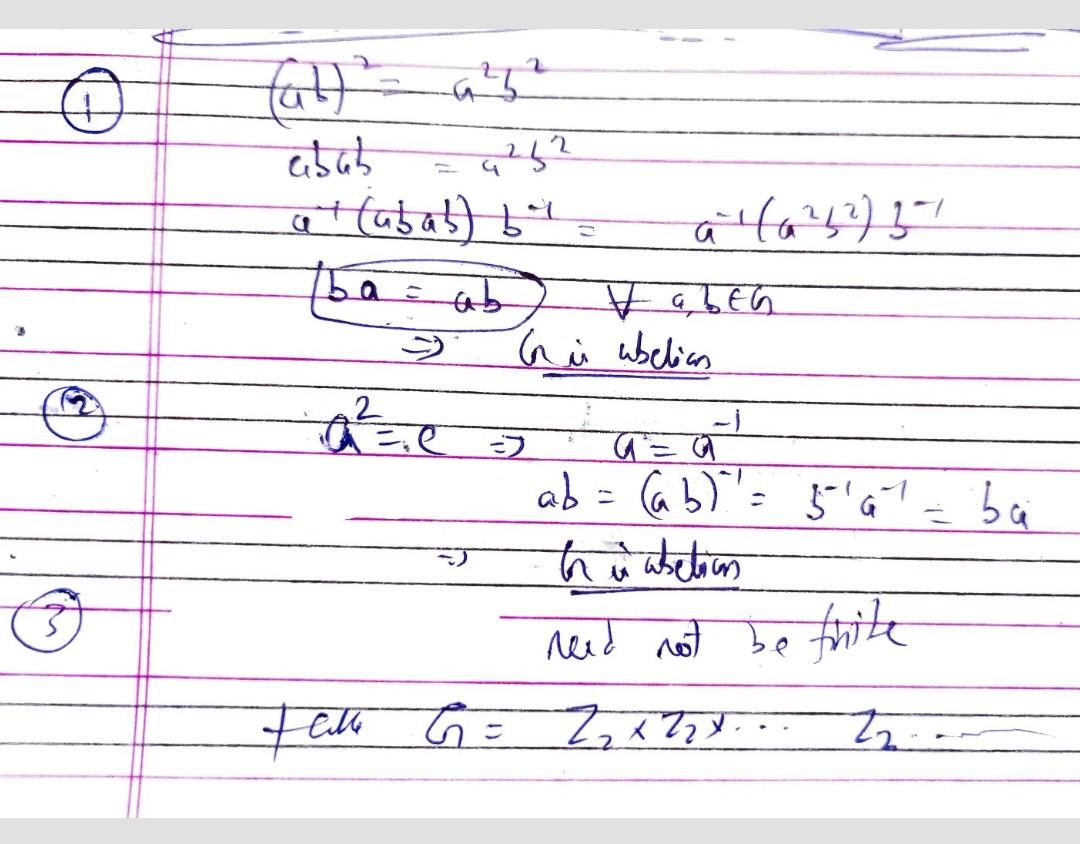 ① (ab)² = a²b²
abab = a²b²
a⁻¹(abab) b⁻¹ = a⁻¹(a²b²) b⁻¹
ba = ab ∀ a, b ∈ G
⇒ G is abelian
② a² = e ⇒ a = a⁻¹
ab = (ab)⁻¹ = b⁻¹a⁻¹ = ba
⇒ G is abelian
③ need not be finite
take G = Z₂ × Z₂ × ... Z₂ ...